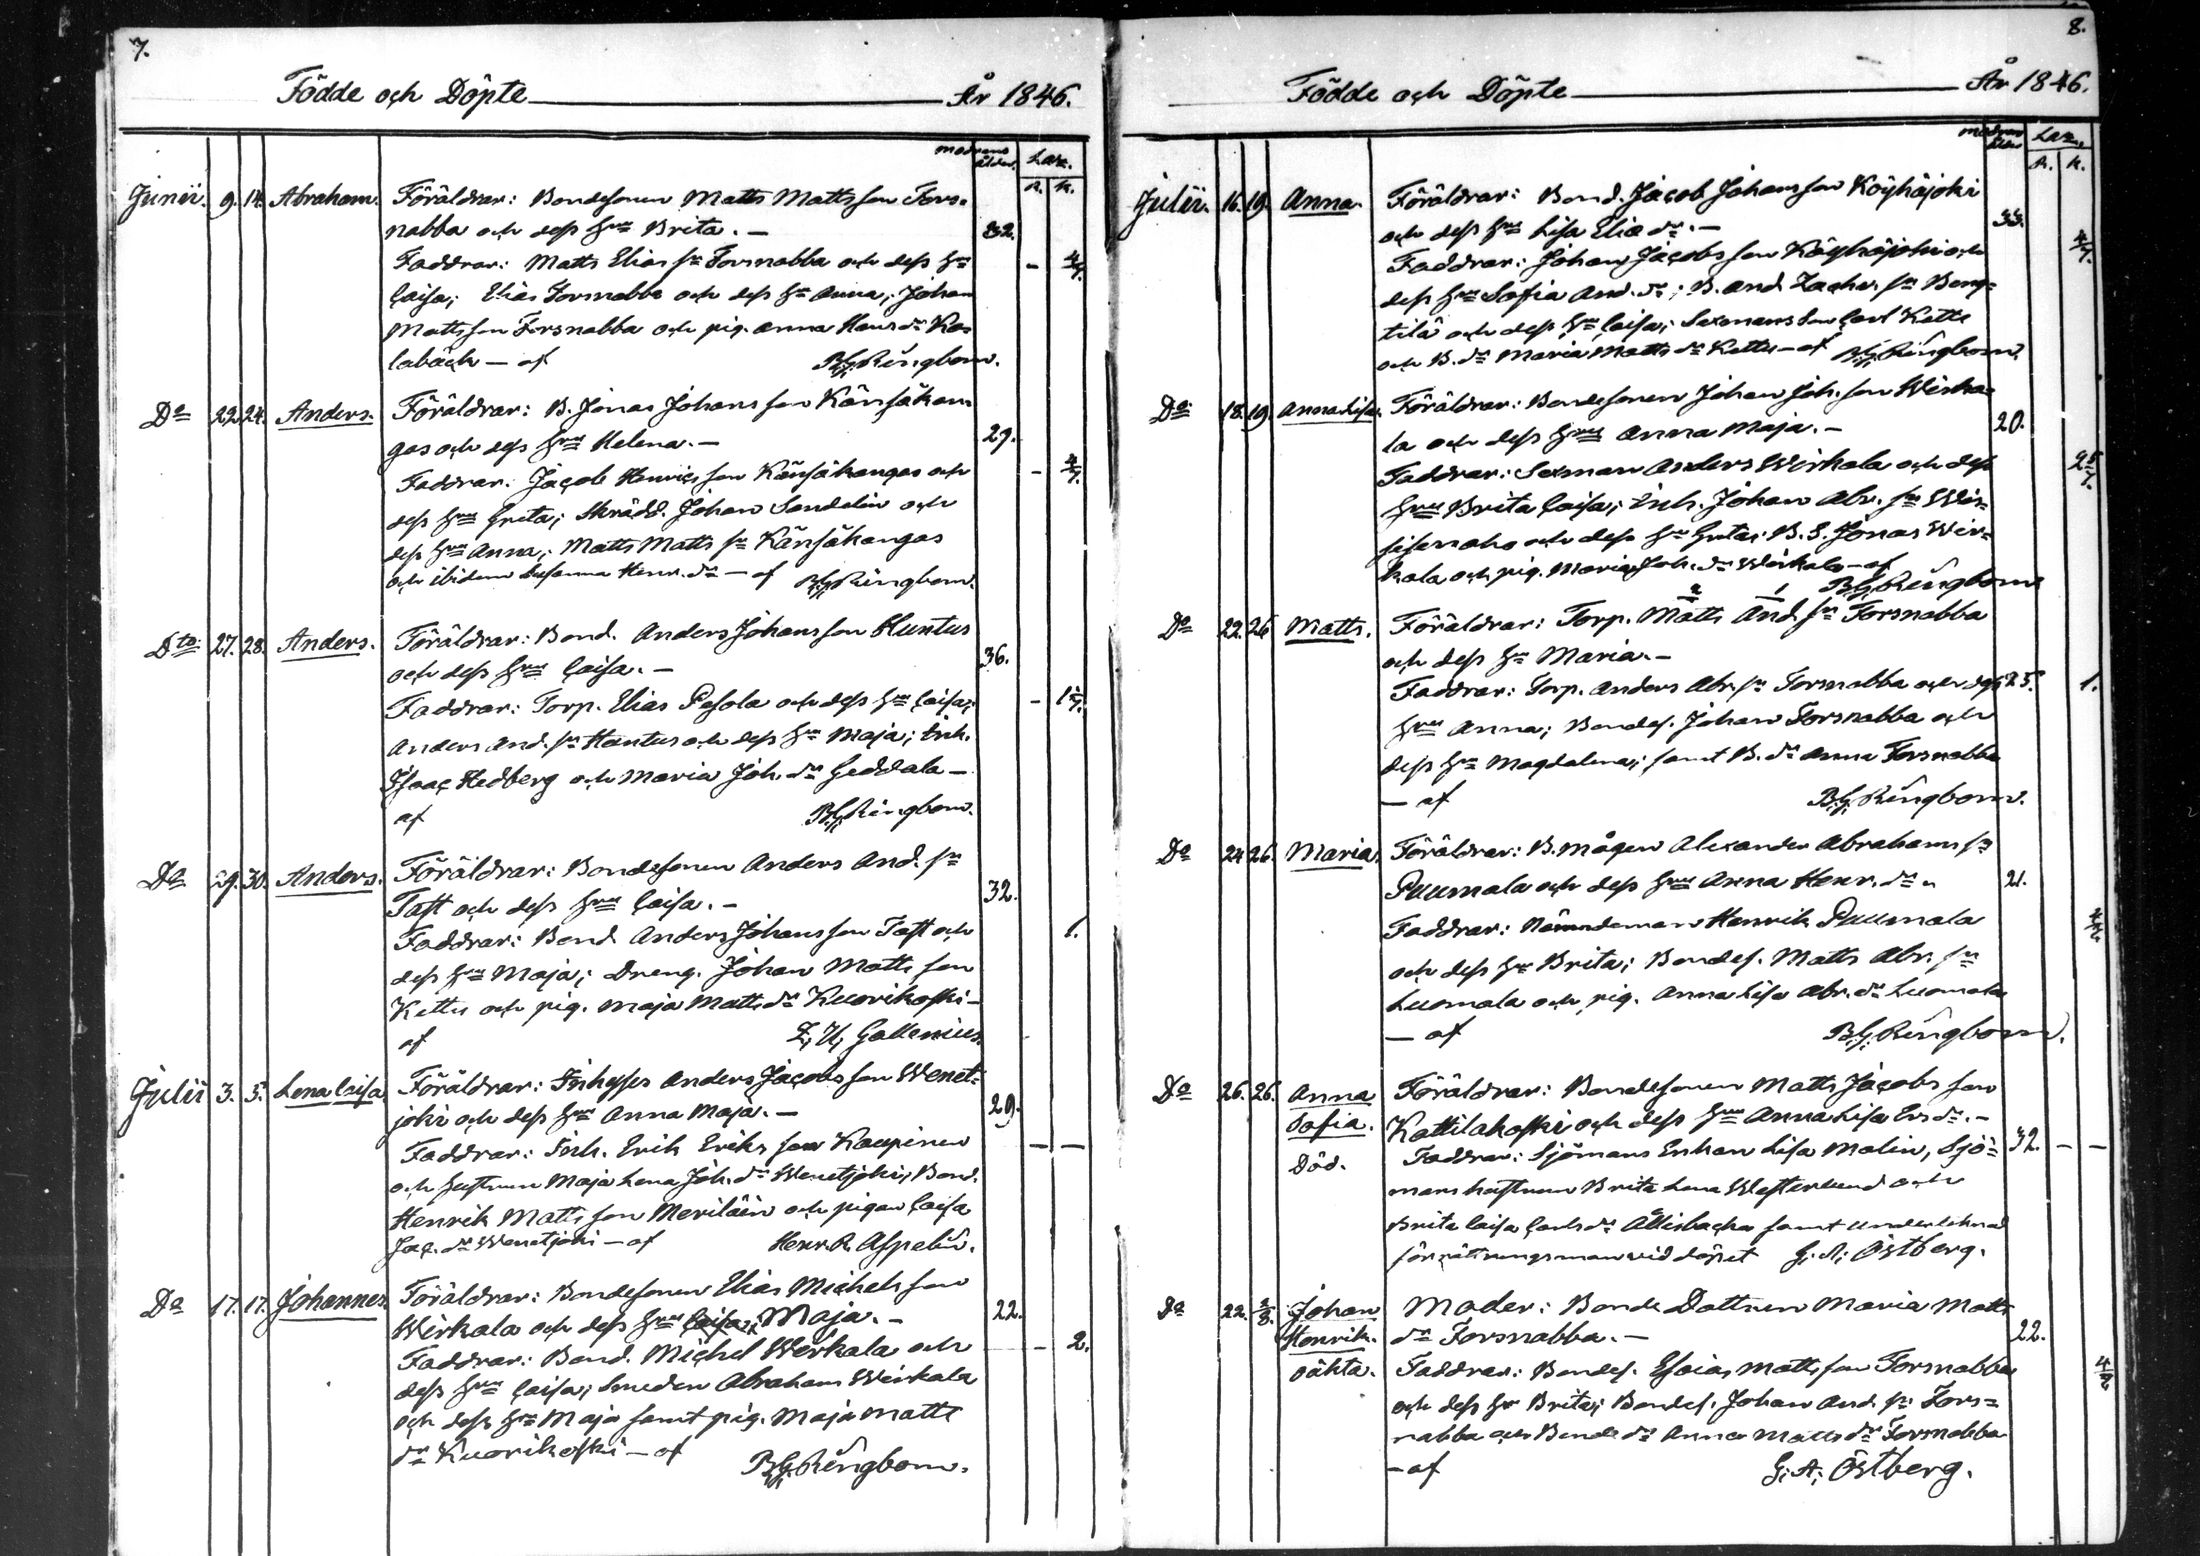 7.
Födde och Döpte År 1846.
modrens ålder. Laz.
R. K.
Junii. 9. 14. Abraham. Föräldrar: Bondesonen Matts Mattsson Fors-
nabba och dess hru Brita. — 32.
Faddrar: Matts Elias sn Forsnabba och dess hu - 4/7.
Caisa; Elias Forsnabba och dess hu Anna; Johan
Mattsson Forsnabba och pig. Anna Hans dr Ka-
labäck — af B.G. Ringbom.
Do 22. 24. Anders. Föräldrar: B. Jonas Johansson Känsäkan-
gas och dess hru Helena. — 29.
Faddrar: Jacob Henricsson Känsäkangas och - 4/7.
dess hru Greta; Skrädd. Johan Sandelin och
dess hru Anna; Matts Matts sn Känsäkangas
och ibidem Susanna Henr. dr — af B.G. Ringbom.
Dto 27. 28. Anders. Föräldrar: Bond. Anders Johansson Huntus
och dess hru Caisa. — 36.
Faddrar: Torp. Elias Pesola och dess hu Caisa; - 1 1/7.
Anders And. sn Huntus och dess hu Maja; Inh.
Isaac Hedberg och Maria Joh. dr Geddala —
af B.G. Ringbom.
Do 29. 30. Anders. Föräldrar: Bondesonen Anders And. sn
Tast och dess hru Caisa. — 32.
Faddrar: Bond. Anders Johansson Tast och 1.
dess hru Maja; Dreng. Johan Mattsson
Kettu och pig. Maja Matts dr Kuorikoski —
af Z. U. Gallenius.
Julii 3. 5. Lena Caisa. Föräldrar: Inhyses Anders Jacobsson Wenet-
joki och dess hru Anna Maja. — 29.
Faddrar: Inh. Erik Eriksson Kaupinen — —
och hustrun Maja Lena Joh. dr Wenetjoki, Bond.
Henrik Mattsson Meriläin och pigan Caisa
Jac. dr Wenetjoki — af Henr. R. Aspelin.
Do 17. 17. Johannes. Föräldrar: Bondesonen Elias Michelsson
Wirkala och dess hru Caisa; Maja. — 22.
Faddrar: Bond. Michel Wirkala och - 2.
dess hru Caisa; Smeden Abraham Wirkala
och dess hru Maja samt pig. Maja Matts
dr Kuorikoski — af B.G. Ringbom.
8.
Födde och Döpte År 1846.
modrens ålder Laz.
R. K.
Julii. 16. 19. Anna. Föräldrar: Bond. Jacob Johansson Köyhäjoki
och dess hru Lisa Elia dr. — 33.
Faddrar: Johan Jacobsson Köyhäjoki och 4/7.
dess hru Sofia And. dr; B. And. Zachr. sn Beng-
tilä och dess hru Caisa; Sexmans Son Carl Kettu
och B. dr Maria Matts dr Kettu — af B.G. Ringbom.
Do 18. 19. Anna Lisa. Föräldrar: Bondesonen Johan Joh. son Wirka-
la och dess hru Anna Maja. — 20.
Faddrar: Sexman Anders Wirkala och dess 2 5/7.
hru Brita Caisa; Inh. Johan Abr. sn
och dess hu Greta; B. S. Jonas Wir-
kala och pig. Maria Joh. dr Wirkala — af
B.G. Ringbom.
Do 22. 26. Matts. Föräldrar: Torp. Matts And. sn Forsnabba
och dess hu Maria. —
Faddrar: Torp. Anders Abr. sn Forsnabba och dess 25. 1.
hru Anna; Bondes. Johan Forsnabba och
dess hru Magdalena; samt B. dr Anna Forsnabba
— af B.G. Ringbom.
Do 24. 26. Maria. Föräldrar: B. mågen Alexander Abrahams sn
Puumala och dess hru Anna Henr. dr. 21.
Faddrar: Nämndeman Henrik Puumala
och dess hu Brita; Bondes. Matts Abr. sn
Luomala och pig. Anna Lisa Abr. dr Luomala
— af B.G. Ringbom.
Do 26. 26. Anna Föräldrar: Bondesonen Matts Jacobsson
Sofia. Kattilakoski och dess hru Anna Lisa Ers dr. —
Död. Faddrar: Sjömans Enkan Lisa Malin, Sjö- 32. — —
mans hustrun Brita Lena Westerlund och
Brita Caisa Carls dr Ållisbacka samt undertecknad
förrättningsman vid döpet G. A. Östberg.
Do 22. 2/8. Johan Moder: Bonde Dottren Maria Matts
Henrik. dr Forsnabba. — 22.
oäkta. Faddrar: Bondes. Esaias Mattsson Forsnabba 4/7.
och dess hu Brita; Bondes. Johan And. sn Fors=
nabba och Bonde dr Anna Matts dr Forsnabba
— af G. A. Östberg.